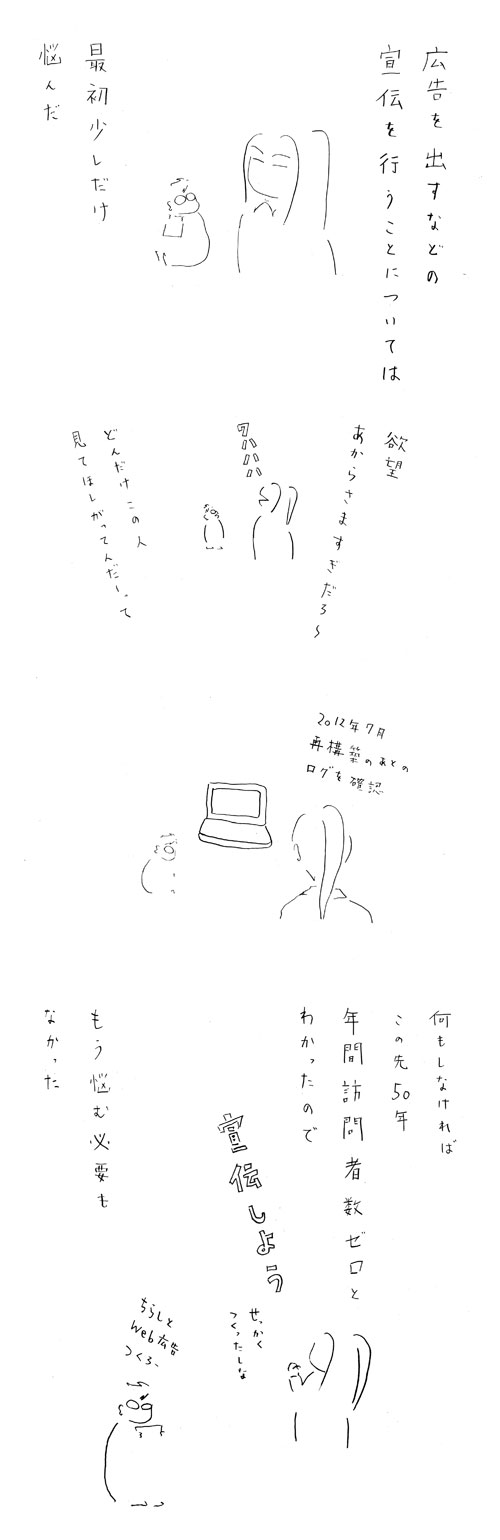 広告を出すなどの
宣伝を行うことについては
最初少しだけ
悩んだ
欲望
あからさますぎだろ〜
ワハハハハ
どんだけこの人
見てほしがってんだーって
2012年7月
再構築のあとの
ログを確認
何もしなければ
この先50年
年間訪問者数ゼロと
わかったので
宣伝しよう
せっかく
つくったしな
ちらしと
Web広告
つくろー
もう悩む必要も
なかった